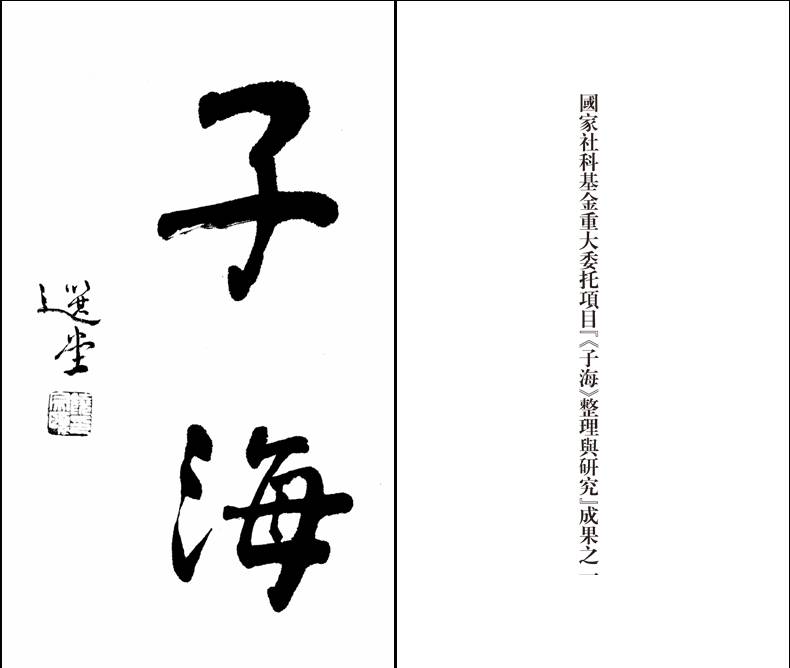 子海
選堂
國家社科基金重大委托項目『《子海》整理與研究』成果之一